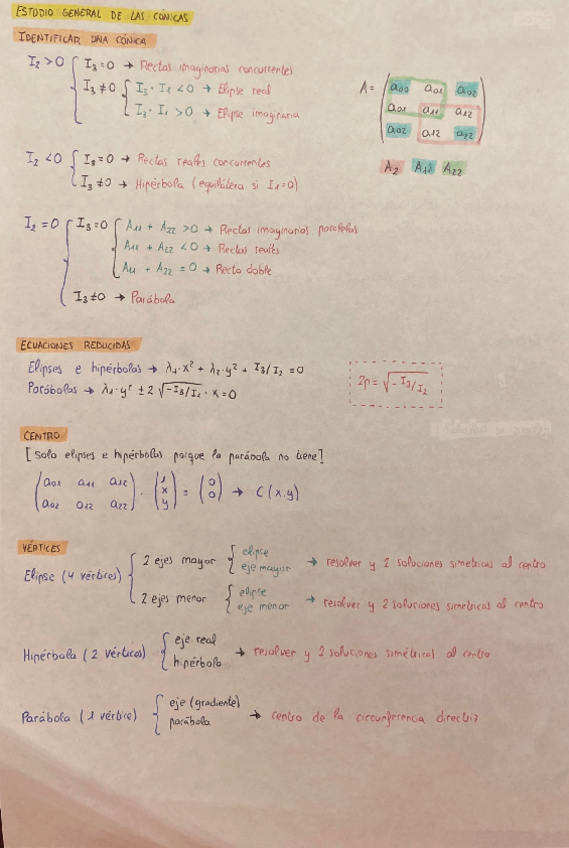 ESTUDIO GENERAL DE LAS CÓNICAS
IDENTIFICAR UNA CÓNICA
I₂ > 0 { I₃ = 0 → Rectas imaginarias concurrentes
I₃ ≠ 0 { I₃ · I₁ < 0 → Elipse real
I₃ · I₁ > 0 → Elipse imaginaria
A = ( a₀₀ a₀₁ a₀₂
a₀₁ a₁₁ a₁₂
a₀₂ a₁₂ a₂₂ )
A₂ A₁₁ A₂₂
I₂ < 0 { I₃ = 0 → Rectas reales concurrentes
I₃ ≠ 0 → Hipérbola (equilátera si I₁ = 0)
I₂ = 0 { I₃ = 0 { A₁₁ + A₂₂ > 0 → Rectas imaginarias paralelas
A₁₁ + A₂₂ < 0 → Rectas reales
A₁₁ + A₂₂ = 0 → Recta doble
I₃ ≠ 0 → Parábola
ECUACIONES REDUCIDAS
Elipses e hipérbolas → λ₁ · x² + λ₂ · y² + I₃/I₂ = 0
Parábolas → λ₁ · y² ± 2 √(-I₃/I₁) · x = 0
2p = √(-I₃/I₂)
CENTRO
[Solo elipses e hipérbolas porque la parábola no tiene]
( a₀₁ a₁₁ a₁₂
a₀₂ a₁₂ a₂₂ ) · ( 1 x y ) = ( 0 0 ) → C (x,y)
VÉRTICES
Elipse (4 vértices) { 2 ejes mayor { elipse
eje mayor → resolver y 2 soluciones simétricas al centro
2 ejes menor { elipse
eje menor → resolver y 2 soluciones simétricas al centro
Hipérbola (2 vértices) { eje real
hipérbola → resolver y 2 soluciones simétricas al centro
Parábola (1 vértice) { eje (gradiente)
parábola → centro de la circunferencia directriz